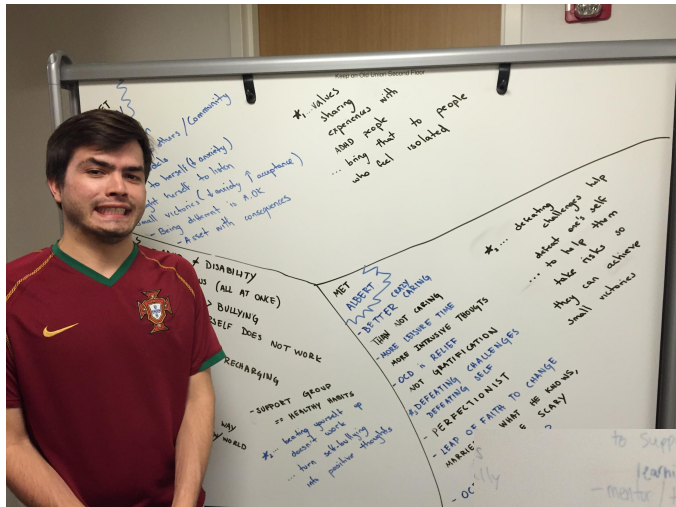 Keep on Old Union Second Floor
MET
others / Community
to herself (↓ anxiety)
herself to listen
small victories (↓ anxiety ↑ acceptance)
- Being different is A.OK
- Asset with consequences
*, ... values
sharing
experiences with
ADHD people
... bring that to people
who feel isolated
≠ DISABILITY
(ALL AT ONCE)
BULLYING
DOES NOT WORK
RECHARGING
WAY
WORLD
- SUPPORT GROUP
== HEALTHY HABITS
*2 ... beating yourself up
doesn't work
... turn self-bullying
into positive thoughts
MET
ALBERT CRAZY
- BETTER CARING
THAN NOT CARING
- MORE LEISURE TIME
MORE INTRUSIVE THOUGTS
- OCD = RELIEF
NOT GRATIFICATION
*, DEFEATING CHALLENGES
DEFEATING SELF
- PERFECTIONIST
- LEAP OF FAITH TO CHANGE
WHAT HE KNOWS,
SCARY
*3 ... defeating
challenges help
defeat one's self
... to help them
take risks so
they can achieve
small victories
to
- mentor /